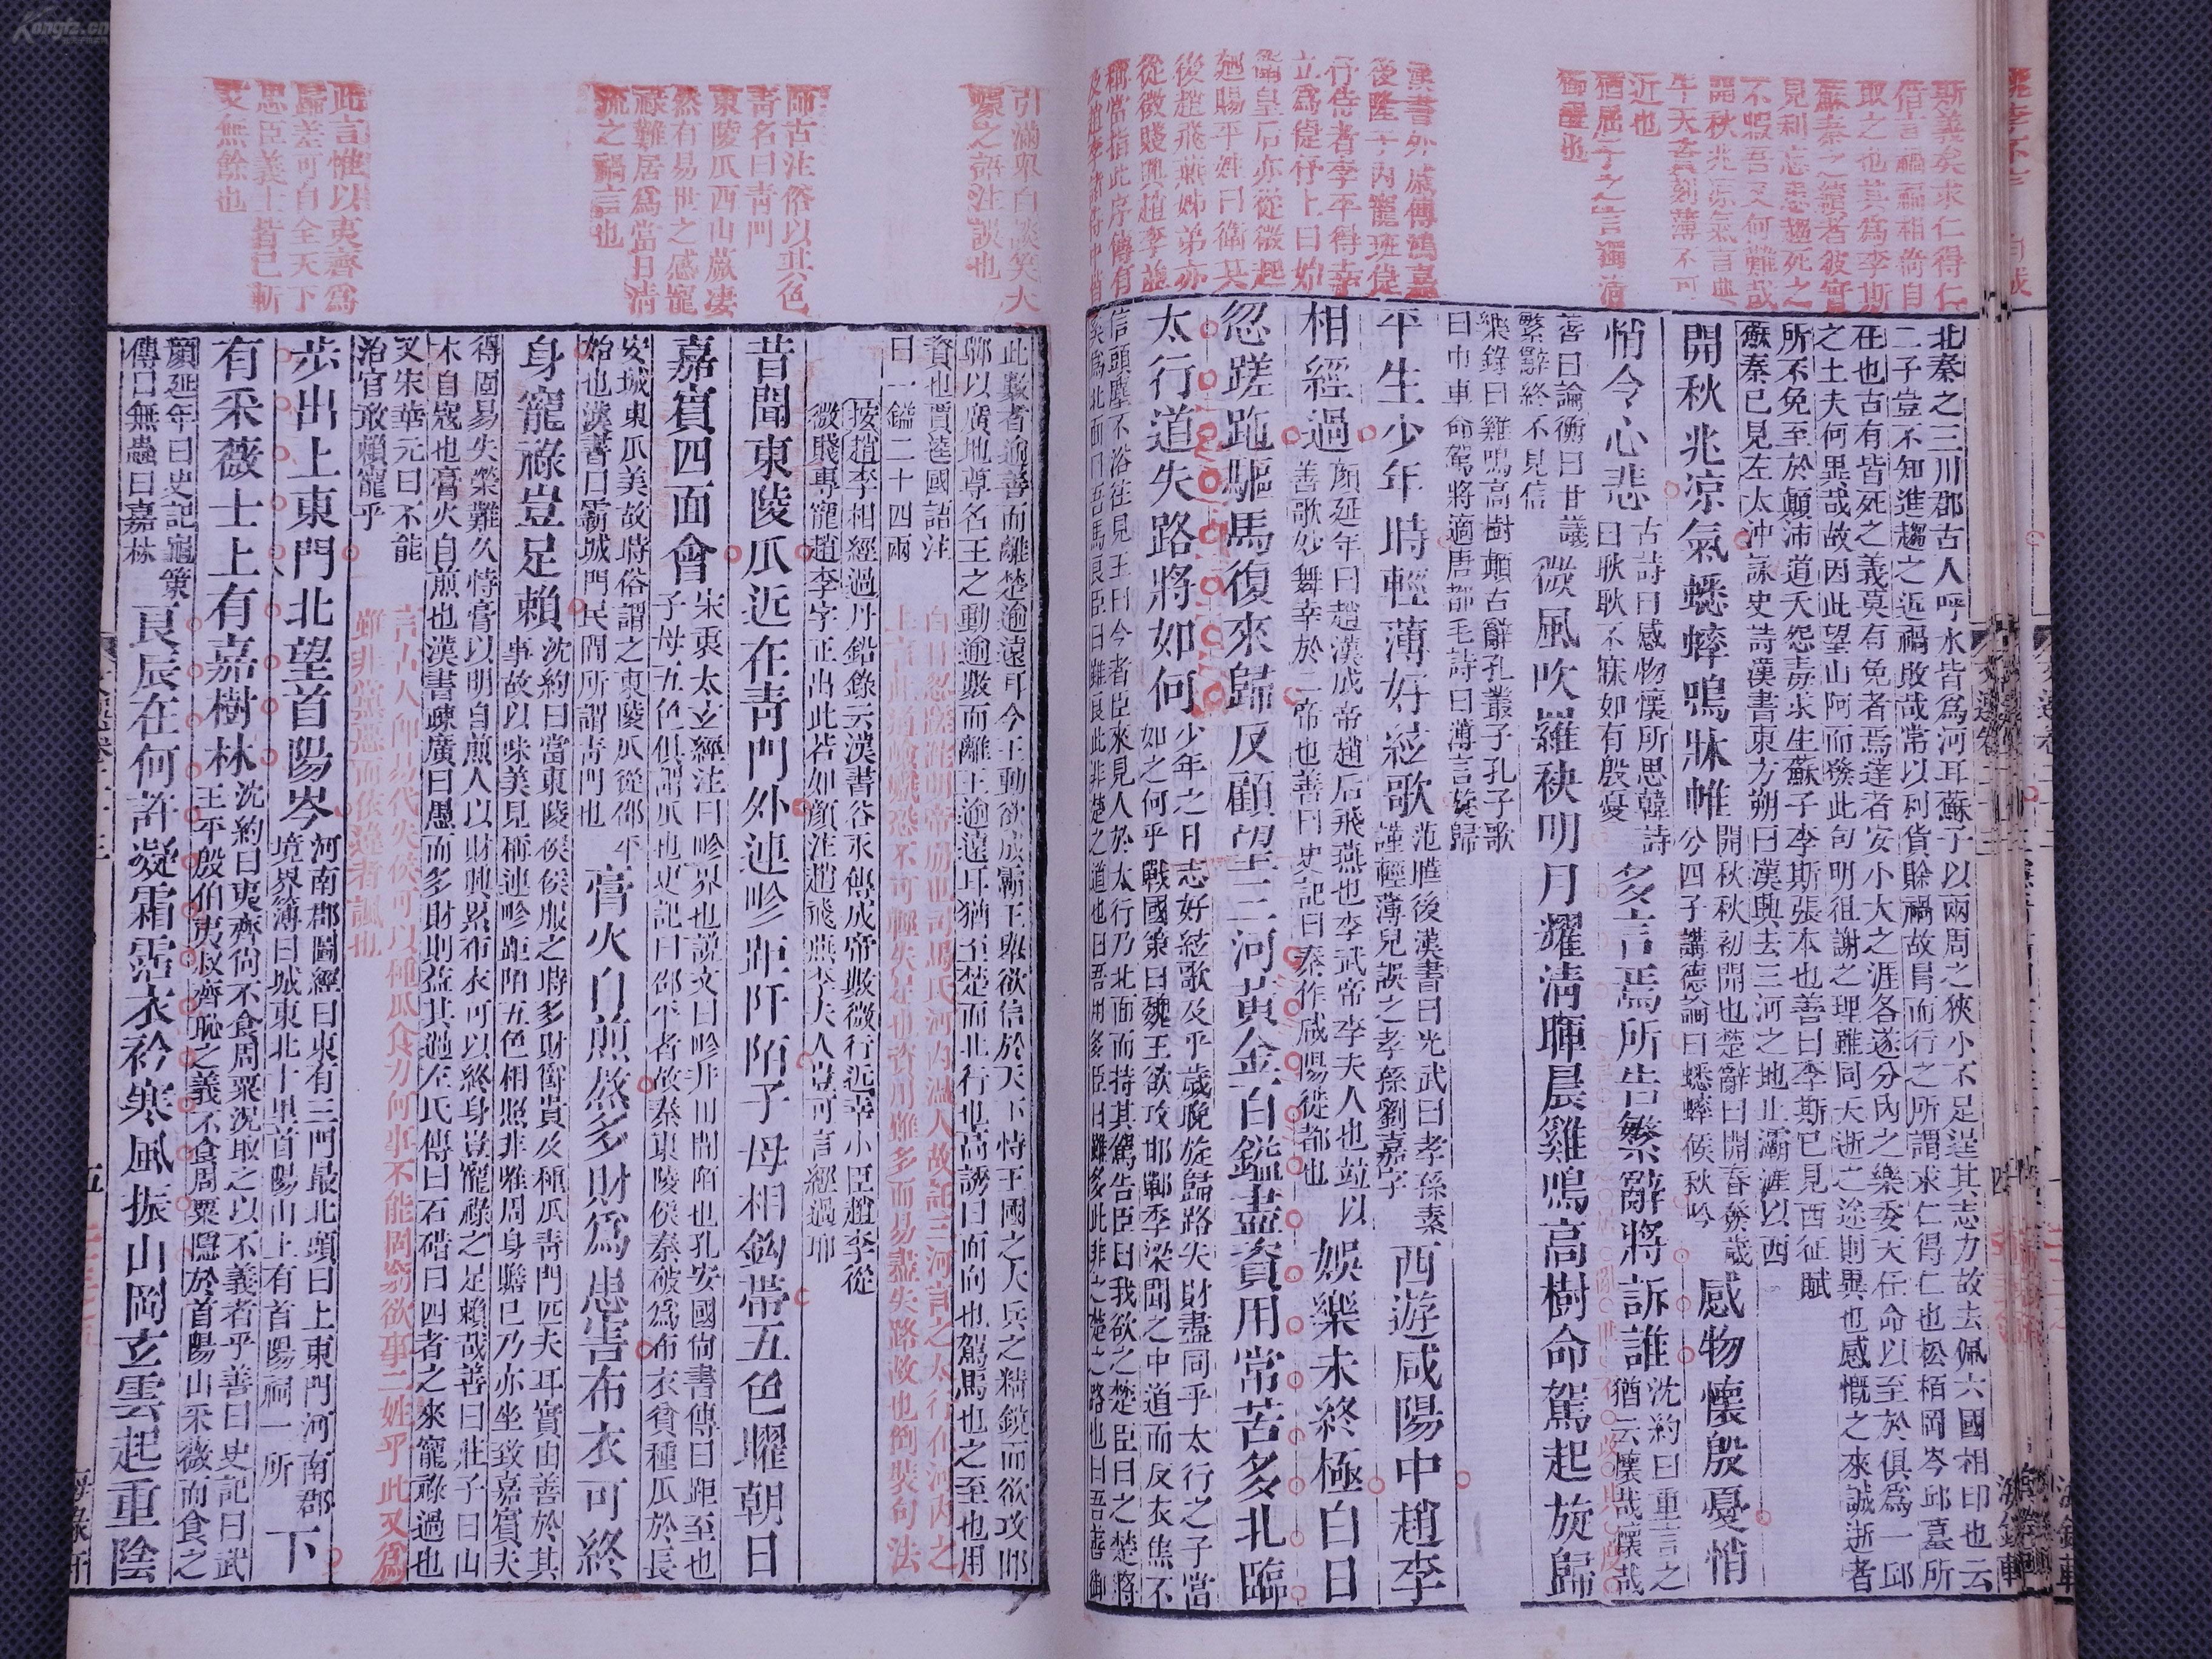 斯義矣求仁得仁
借言禍福相倚自
取之也其為李斯
蘇秦之續者彼實
見利忘患趨死之
不暇吾又何難哉
開秋兆涼氣言與
牛天生刻薄不可
近也
猶屈子之言獨清
獨醒也
漢書外戚傳鴻嘉
後隆于內寵班倢
伃侍者李平得幸
立為倢伃上曰始
衛皇后亦從微起
廼賜平姓曰衛其
後趙飛燕姊弟亦
從微賤興趙李並
稱當指此序傳有
及趙李諸侍中皆
北秦之三川郡古人呼水皆為河耳蘇子以兩周之狹小不足逞其志力故去佩六國相印也云
二子豈不知進趨之近禍敗哉常以利貨賒禍故冒而行之所謂求仁得仁也松栢岡岑邱墓所
在也古有皆死之義莫有免者焉達者安小大之涯各遂分內之樂委天任命以至於俱為一邱
之土夫何異哉故因此望山阿而發此句明徂謝之理雖同夭逝之途則異也感慨之來誠逝者
所不免至於顛沛道夭怨毒求生蘇子李斯張本也善曰李斯已見西征賦
蘇秦已見左太沖詠史詩漢書東方朔曰漢興去三河之地止灞滻以西
開秋兆涼氣蟋蟀鳴牀帷
開秋秋初開也楚辭曰開春發歲
公四子講德論曰蟋蟀候秋吟
感物懷殷憂悄
悄令心悲
古詩曰感物懷所思韓詩
曰耿耿不寐如有殷憂
多言焉所告繁辭將訴誰
沈約曰重言之
猶云懷哉懷哉
善曰論衡曰甘議
繁辭終不見信
微風吹羅袂明月耀清暉晨雞鳴高樹命駕起旋歸
樂錄曰雞鳴高樹顛古辭孔叢子孔子歌
曰巾車命駕將適唐都毛詩曰薄言旋歸
平生少年時輕薄好絃歌
范曄後漢書曰光武曰孝孫素
謹輕薄兒誤之孝孫劉嘉字
西遊咸陽中趙李
相經過
顏延年曰趙漢成帝趙后飛燕也李武帝李夫人也並以
善歌妙舞幸於二帝也善曰史記曰秦作咸陽徙都也
娛樂未終極白日
忽蹉跎驅馬復來歸反顧望三河黃金百鎰盡資用常苦多北臨
太行道失路將如何
少年之日志好絃歌及乎歲晚旋歸路失財盡同乎太行之子當
如之何乎戰國策曰魏王欲攻邯鄲季梁聞之中道而反衣焦不
信頭塵不浴往見王曰今者臣來見人於太行乃北面而持其駕告臣曰我欲之楚臣曰之楚將
奚為北面曰吾馬良臣曰雖良此非楚之道也曰吾用多臣曰雖多此非之楚之路也曰吾善御
引滿舉白談笑大
噱之語注誤也
師古注俗以其色
青名曰青門
東陵瓜西山薇淒
然有易世之感寵
祿難居為當日清
流之禍言也
此言惟以夷齊為
歸差可自全天下
思臣義士皆已斬
艾無餘也
此數者逾善而離楚逾遠耳今王動欲成霸王舉欲信於天下恃王國之大兵之精銳而欲攻邯
鄲以廣地尊名王之動逾數而離王逾遠耳猶至楚而北行也高誘曰面向也駕馬也之至也用
資也賈逵國語注
曰一鎰二十四兩
按趙李相經過丹鉛錄云漢書谷永傳成帝數微行近幸小臣趙李從
微賤專寵趙李字正出此若如顏注趙飛燕李夫人豈可言經過耶
昔聞東陵瓜近在青門外連畛距阡陌子母相鈎帶五色曜朝日
嘉賓四面會
宋衷太玄經注曰畛界也說文曰畛井田間陌也孔安國尚書傳曰距至也
子母五色俱謂瓜也史記曰邵平者故秦東陵侯秦破為布衣貧種瓜於長
安城東瓜美故時俗謂之東陵瓜從邵平
始也漢書曰霸城門民間所謂青門也
膏火自煎熬多財為患害布衣可終
身寵祿豈足賴
沈約曰當東陵侯侯服之時多財爵貴及種瓜青門匹夫耳實由善於其
事故以味美見稱連畛距陌五色相照非雅周身贍己乃亦坐致嘉賓夫
得固易失榮難久恃膏以明自煎人以財興累布衣可以終身豈寵祿之足賴哉善曰莊子曰山
木自寇也膏火自煎也漢書疎廣曰愚而多財則益其過左氏傳曰石碏曰四者之來寵祿過也
又宋華元曰不能
治官敢賴寵乎
言古人即易代失侯可以種瓜食力何事不能固窮欲事二姓乎此又為
雖非黨惡而依違者諷也
步出上東門北望首陽岑
河南郡圖經曰東有三門最北頭曰上東門河南郡
境界簿曰城東北十里首陽山上有首陽祠一所
下
有采薇士上有嘉樹林
沈約曰夷齊尚不食周粟況取之以不義者乎善曰史記曰武
王平殷伯夷叔齊恥之義不食周粟隱於首陽山采薇而食之
顏延年曰史記龜策
傳曰無蟲曰嘉林
良辰在何許凝霜霑衣衿寒風振山岡玄雲起重陰
五
海錄軒